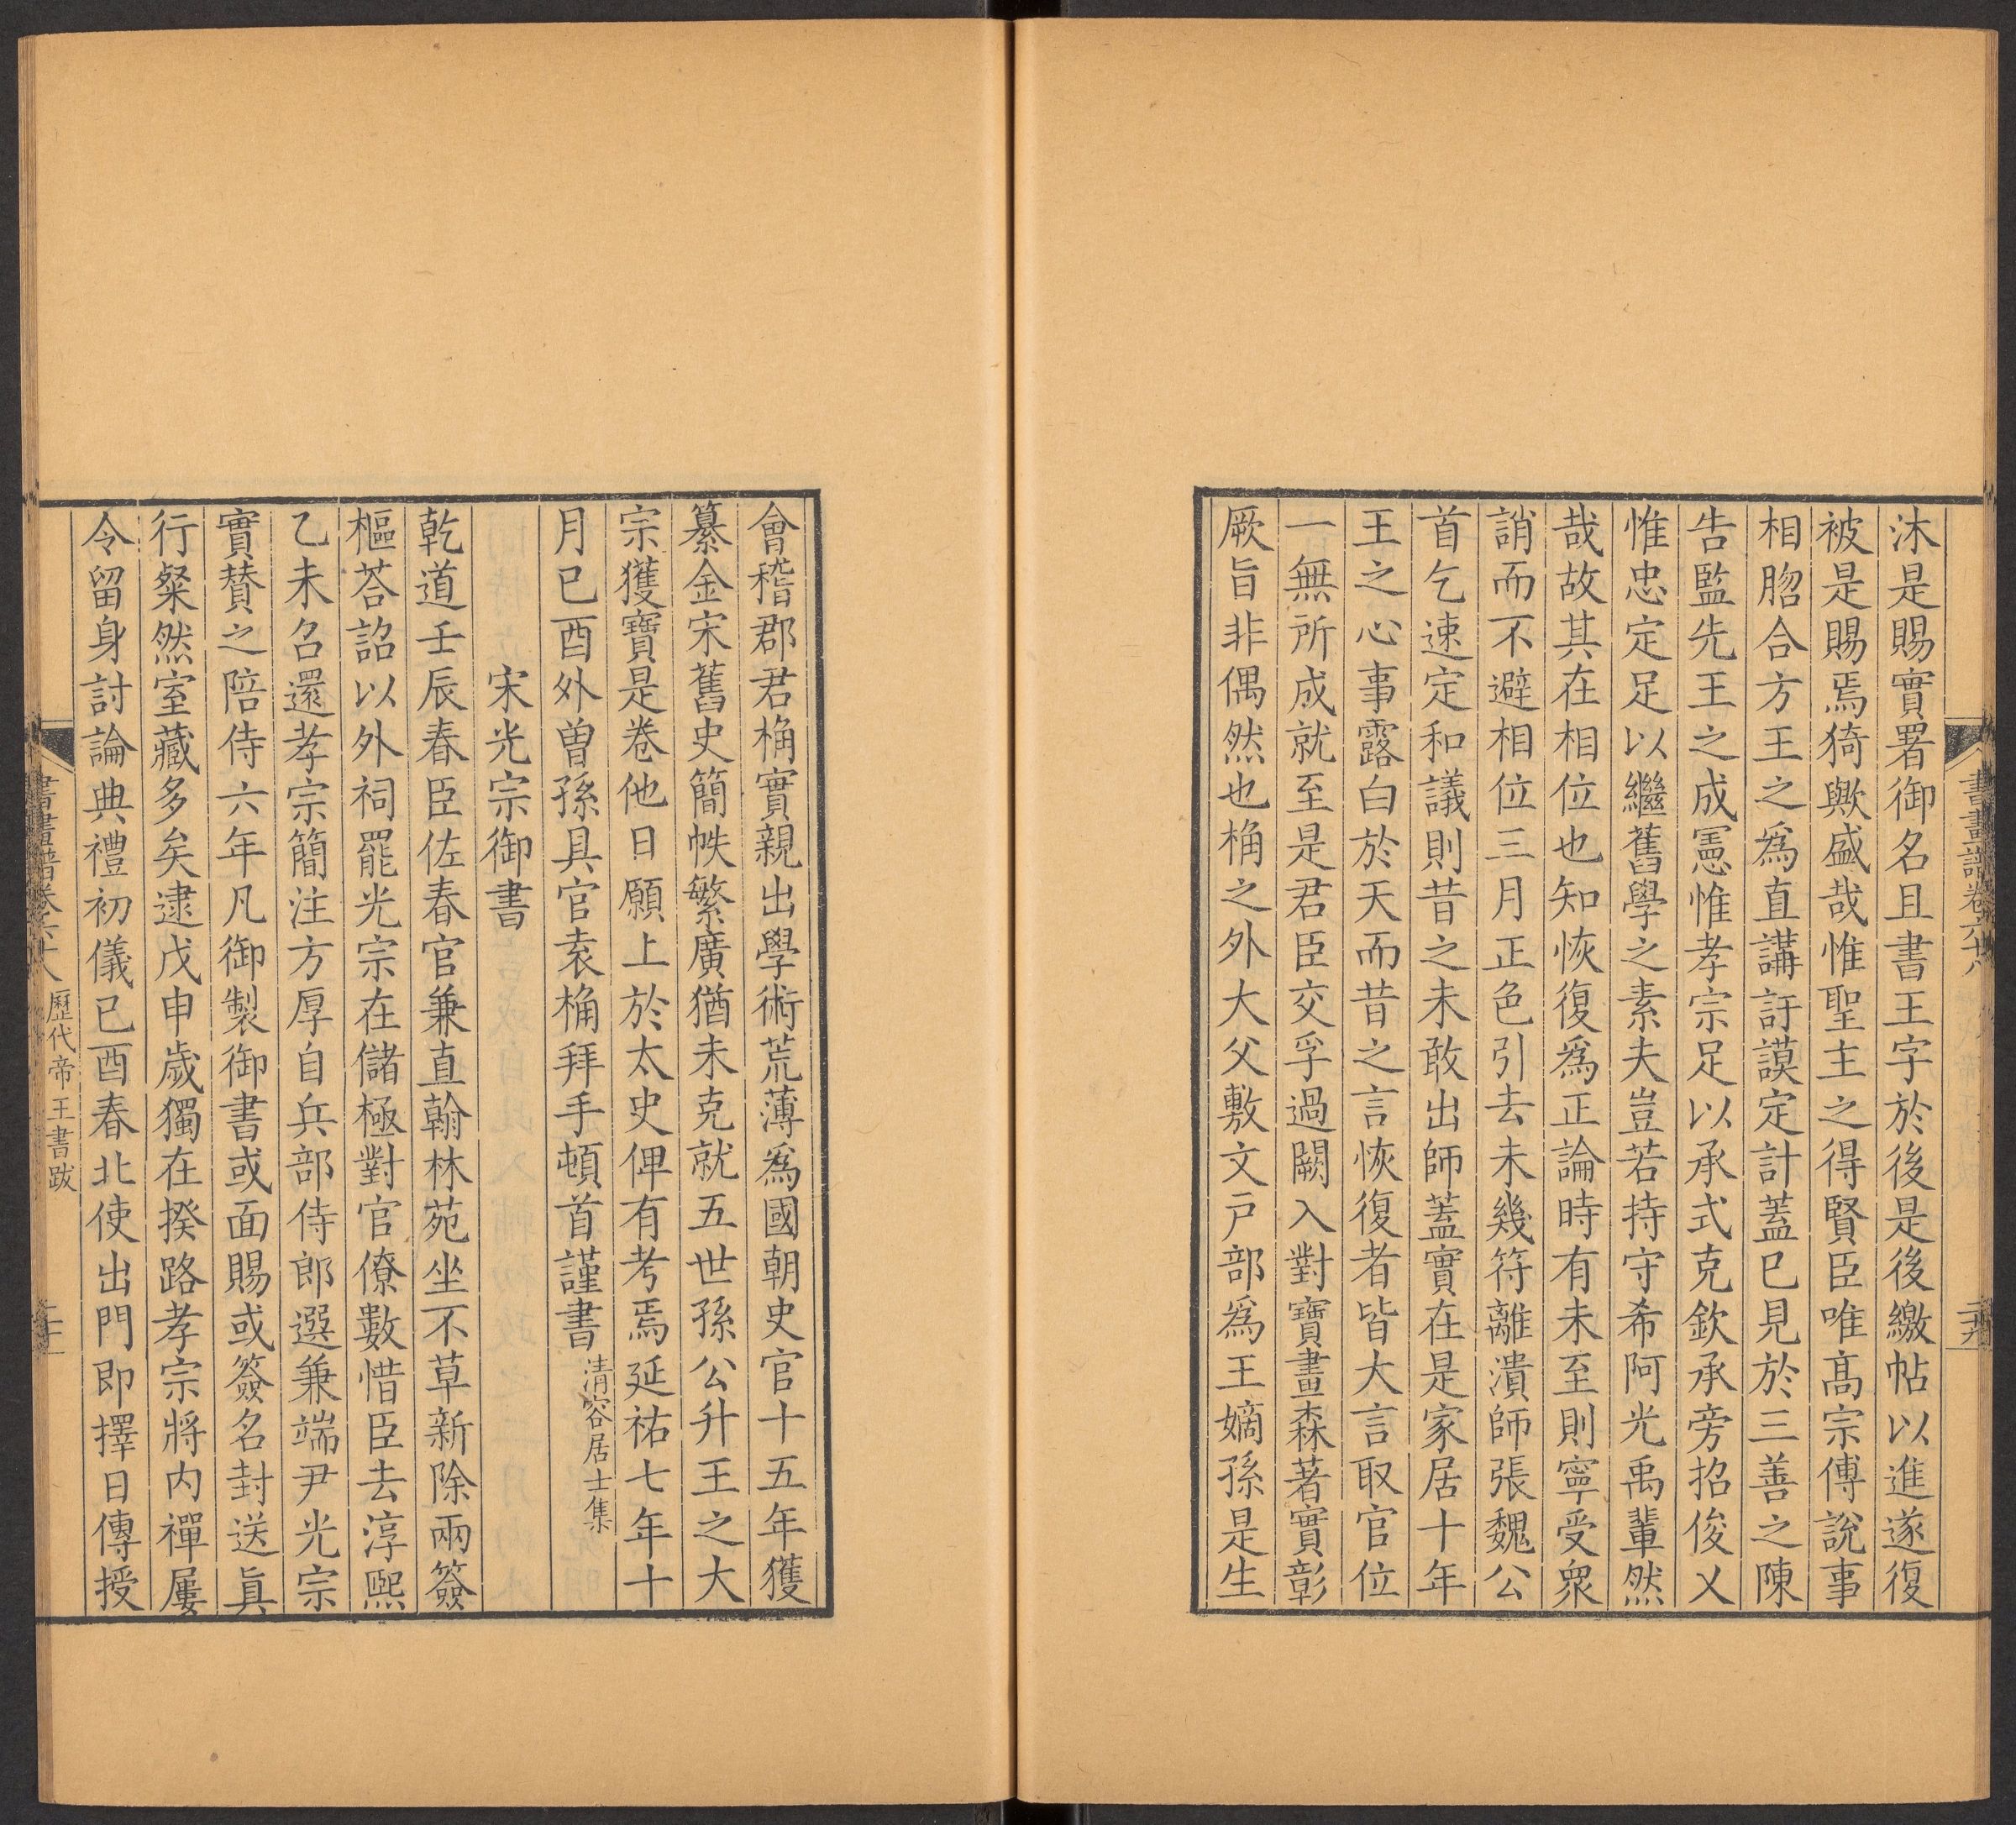 書畫譜卷六十八
沐是賜實署御名且書王字於後是後繳帖以進遂復
被是賜焉猗歟盛哉惟聖主之得賢臣唯高宗傅說事
相脗合方王之爲直講訏謨定計蓋已見於三善之陳
告監先王之成憲惟孝宗足以承式克欽承旁招俊乂
惟忠定足以繼舊學之素夫豈若持守希阿光禹輩然
哉故其在相位也知恢復爲正論時有未至則寧受衆
誚而不避相位三月正色引去未幾符離潰師張魏公
首乞速定和議則昔之未敢出師蓋實在是家居十年
王之心事露白於天而昔之言恢復者皆大言取官位
一無所成就至是君臣交孚過闕入對寶畫森著實彰
厥旨非偶然也桷之外大父敷文戶部爲王嫡孫是生
會稽郡君桷實親出學術荒薄爲國朝史官十五年獲
纂金宋舊史簡帙繁廣猶未克就五世孫公升王之大
宗獲寶是卷他日願上於太史俾有考焉延祐七年十
月已酉外曾孫具官袁桷拜手頓首謹書清容居士集
宋光宗御書
乾道壬辰春臣佐春官兼直翰林苑坐不草新除兩簽
樞荅詔以外祠罷光宗在儲極對官僚數惜臣去淳熙
乙未召還孝宗簡注方厚自兵部侍郎選兼端尹光宗
實賛之陪侍六年凡御製御書或面賜或簽名封送眞
行粲然室藏多矣逮戊申歲獨在揆路孝宗將内禪屢
令留身討論典禮初儀已酉春北使出門即擇日傳授
書畫譜卷六十八 歷代帝王書跋